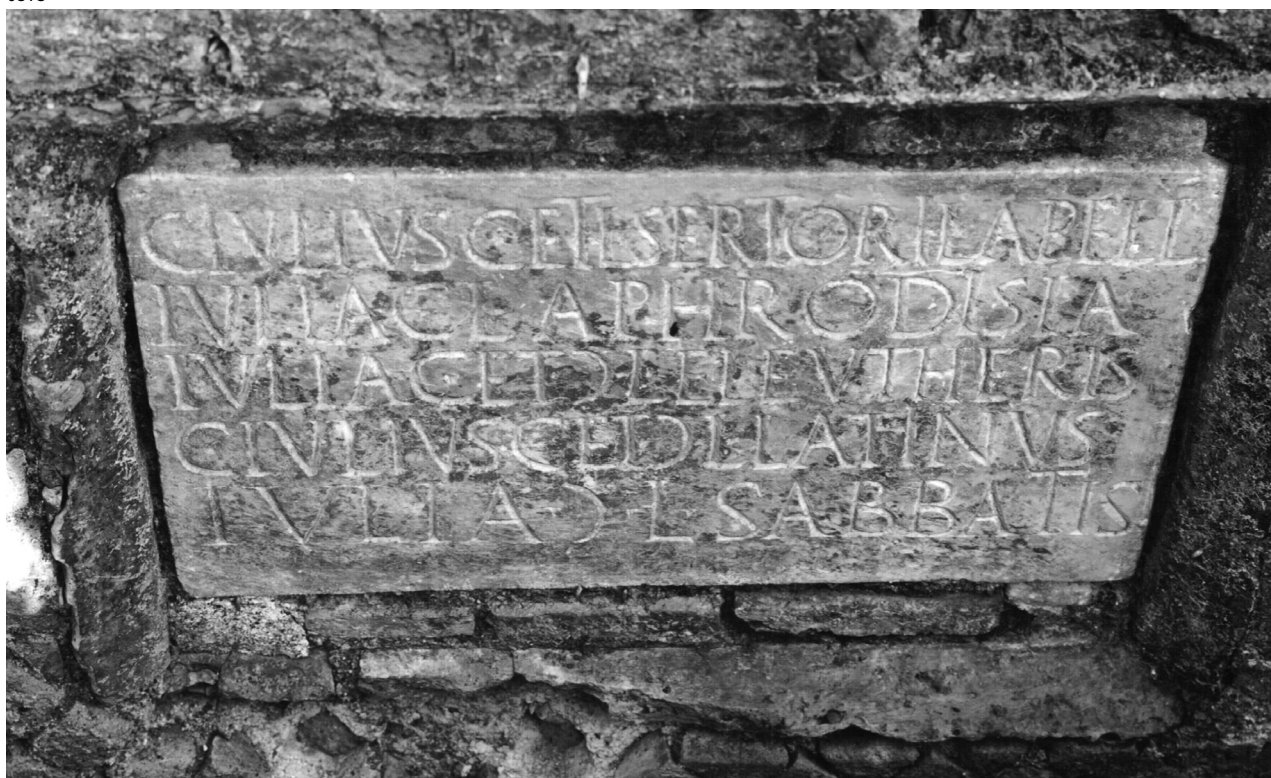 C IVLIVS C ET L SERTORI L APELL
IVLIA C L APHRODISIA
IVLIA C ET Ɔ L ELEVTHERIS
C IVLIVS C ET Ɔ L LATINVS
IVLIA Ɔ L SABBATIS